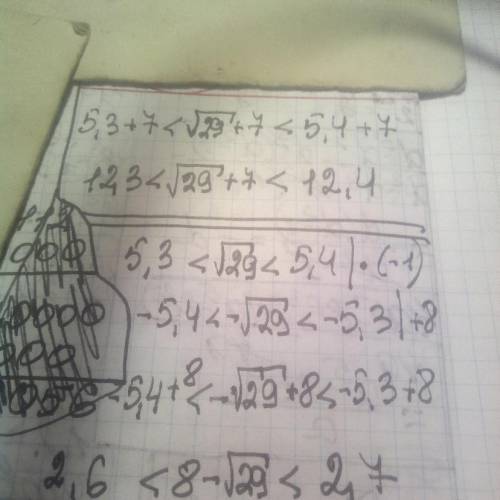 5,3+7<√29+7<5,4+7
12,3<√29+7<12,4
5,3<√29<5,4|·(-1)
-5,4<-√29<-5,3|+8
-5,4+8<-√29+8<-5,3+8
2,6<8-√29<2,7